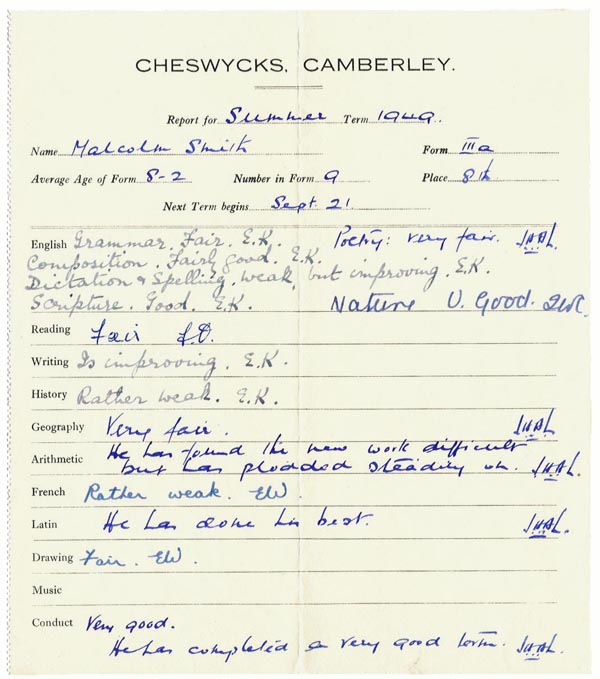 CHESWYCKS, CAMBERLEY.
Report for Summer Term 1949.
Name Malcolm Smith Form IIIa
Average Age of Form 8-2 Number in Form 9 Place 8th
Next Term begins Sept. 21.
English Grammar. Fair. E.K. Poetry: very fair.
Composition. Fairly good. E.K.
Dictation & Spelling. Weak, but improving. E.K.
Scripture. Good. E.K. Nature V. Good.
Reading Fair
Writing Is improving. E.K.
History Rather weak. E.K.
Geography Very fair.
Arithmetic He has found the new work difficult
but has plodded steadily on.
French Rather weak. EW.
Latin He has done his best.
Drawing Fair. EW.
Music
Conduct Very good.
He has completed a very good term.